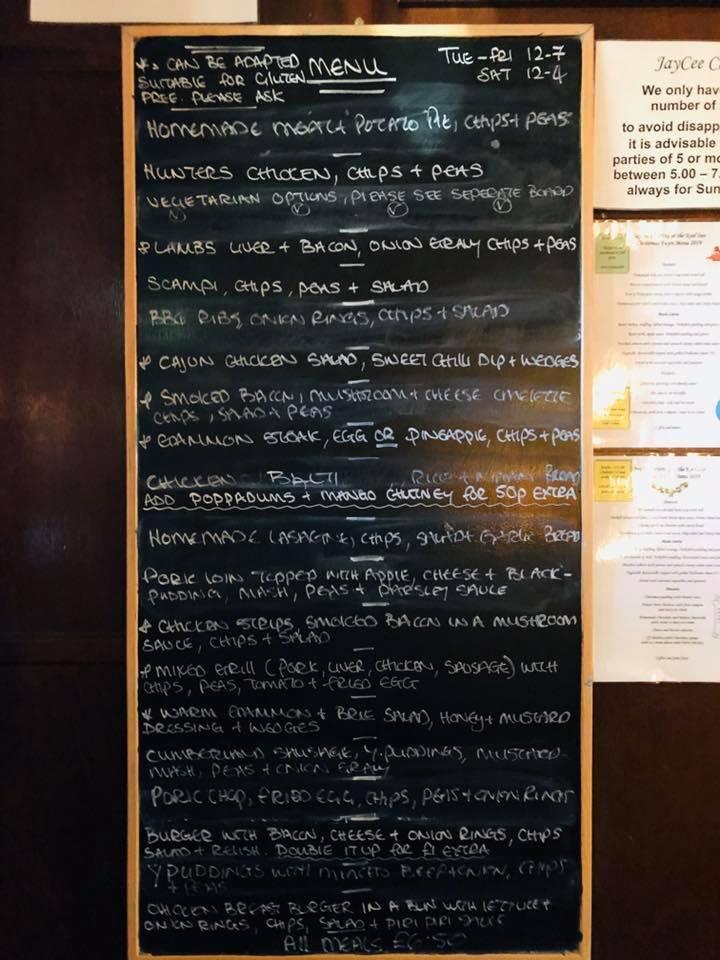 * = CAN BE ADAPTED
SUITABLE FOR GLUTEN
FREE. PLEASE ASK
MENU
TUE - FRI 12-7
SAT 12-4
HOMEMADE MEAT + POTATO PIE, CHIPS + PEAS
HUNTERS CHICKEN, CHIPS + PEAS
VEGETARIAN OPTIONS, PLEASE SEE SEPERATE BOARD
V V V V
* LAMBS LIVER + BACON, ONION GRAVY CHIPS + PEAS
SCAMPI, CHIPS, PEAS + SALAD
BBQ RIBS, ONION RINGS, CHIPS + SALAD
* CAJUN CHICKEN SALAD, SWEET CHILLI DIP + WEDGES
* SMOKED BACON, MUSHROOM + CHEESE OMELETTE
CHIPS, SALAD + PEAS
* GAMMON STEAK, EGG OR PINEAPPLE, CHIPS + PEAS
CHICKEN BALTI, RICE + BREAD
ADD POPPADUMS + MANGO CHUTNEY FOR 50P EXTRA
HOMEMADE LASAGNE, CHIPS, SALAD + GARLIC BREAD
PORK LOIN TOPPED WITH APPLE, CHEESE + BLACK-
PUDDING, MASH, PEAS + PARSLEY SAUCE
* CHICKEN STRIPS, SMOKED BACON IN A MUSHROOM
SAUCE, CHIPS + SALAD
* MIXED GRILL (PORK, LIVER, CHICKEN, SAUSAGE) WITH
CHIPS, PEAS, TOMATO + FRIED EGG
* WARM GAMMON + BRIE SALAD, HONEY + MUSTARD
DRESSING + WEDGES
CUMBERLAND SAUSAGE, Y.PUDDINGS, MUSTARD
MASH, PEAS + ONION GRAVY
PORK CHOP, FRIED EGG, CHIPS, PEAS + ONION RINGS
BURGER WITH BACON, CHEESE + ONION RINGS, CHIPS
SALAD + RELISH. DOUBLE IT UP FOR £1 EXTRA
Y PUDDINGS WITH MINCED BEEF + ONION, CHIPS
+ PEAS
CHICKEN BREAST BURGER IN A BUN WITH LETTUCE +
ONION RINGS, CHIPS, SALAD + PIRI PIRI SAUCE
ALL MEALS £6.50
JayCee C
We only hav
number of
to avoid disapp
it is advisable
parties of 5 or mo
between 5.00 – 7.
always for Sun